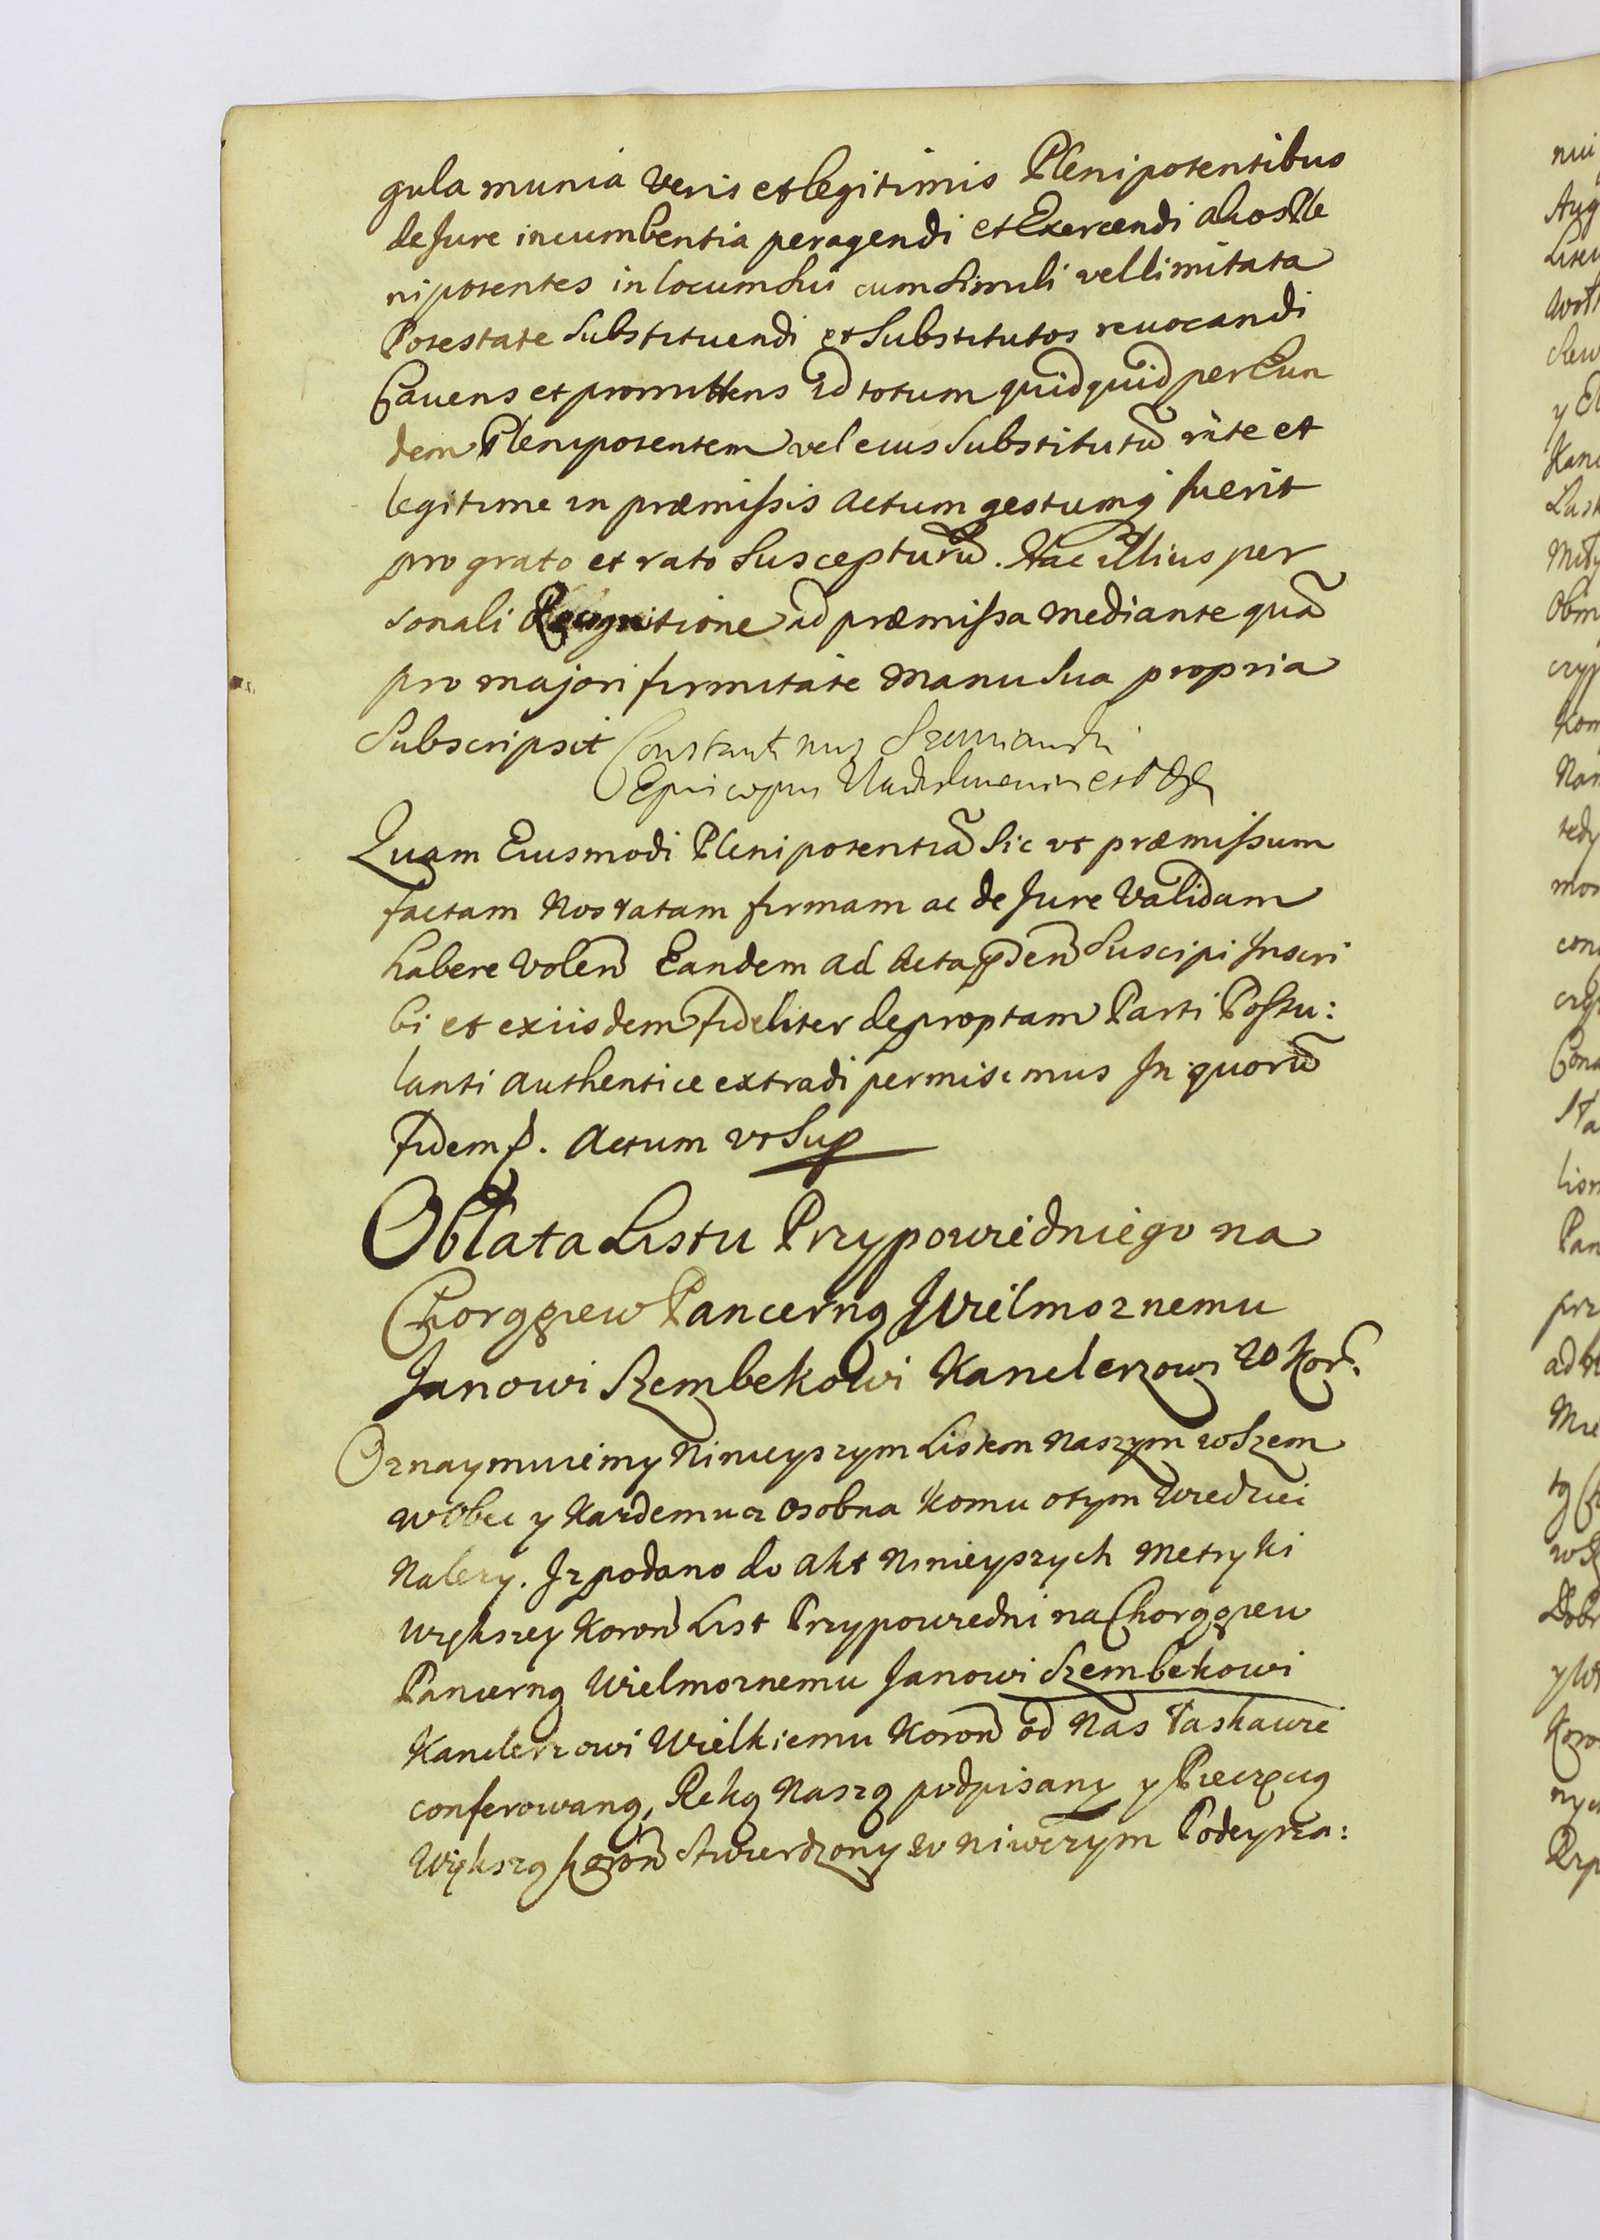 gula munia veris et legitimis Plenipotentibus
de Jure incumbentia peragendi et Exercendi alios Ple
nipotentes in locum sui cum simili vel limitata
Potestate substituendi et substitutos reuocandi
Cauens et promittens id totum quidquid per Eun
dem Plenipotentem vel eius substitutũ rite et
legitime in præmissis actum gestumq fuerit
pro grato et rato suscepturũ. Hac illius per
sonali Recognitione ad præmissa mediante quã
pro majori firmitate manu sua propria
Subscripsit Constantinus Szeniawski
Episcopus
Quam Eiusmodi Plenipotentiã sic vt præmissum
factam Nos ratam firmam ac de Jure validam
habere volen̄ Eandem ad Acta p̄den̄ suscipi Inscri
bi et ex iisdem fideliter depromptam Parti Postu:
lanti authentice extradi permisimus In quorũ
fidem p. Actum vt Sup
Oblata Listu Przypowiedniego na
Chorągiew Pancerną Wielmoznemu
Janowi Szembekowi Kanclerzowi W Kor.
Oznaymuiemy Ninieyszym Listem Naszym wszem
wobec y Kazdemu z osobna komu o tym wiedziei
Nalezy. Iz podano do akt Ninieyszych Metryki
większey Koron̄ List Przypowiedni na Chorągiew
Pancerną Wielmoznemu Janowi Szembekowi
Kanclerzowi Wielkiemu Koron̄ od Nas łaskawie
conferowaną, Ręką Naszą podpisany y Pieczęcią
Większą Koron̄ stwierdzony w niwczym Podeyrza: